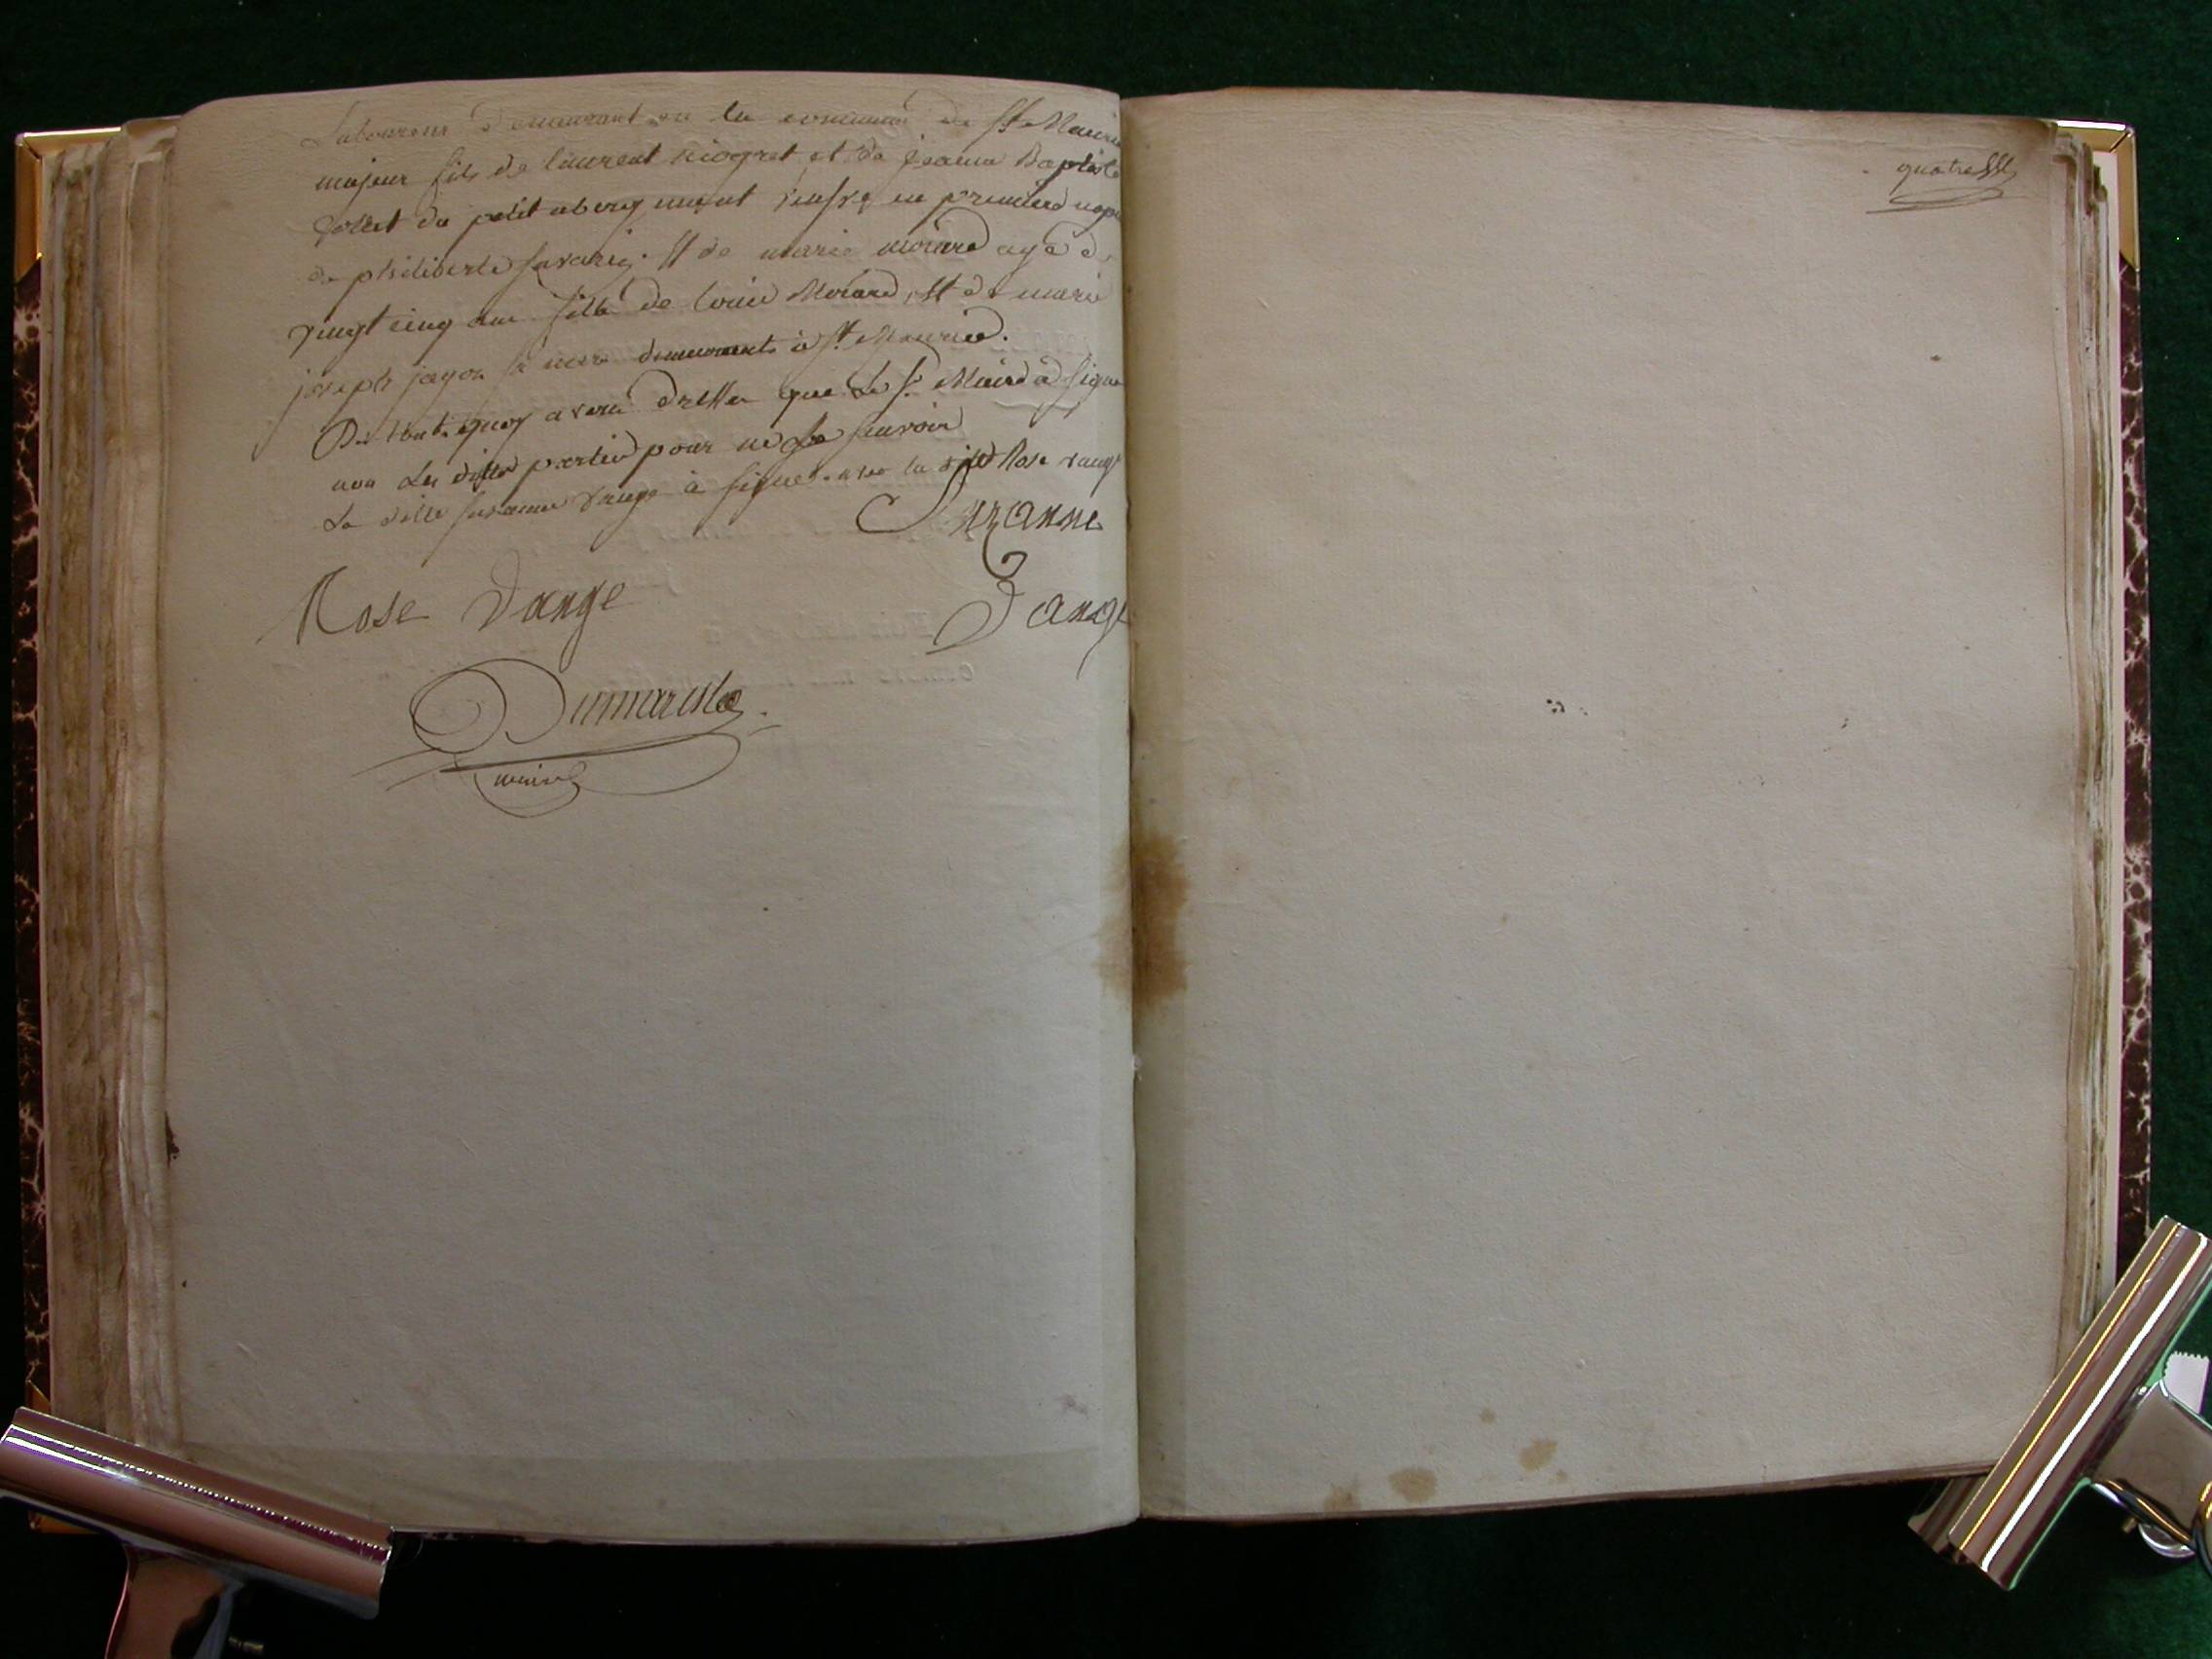 Laboureur demeurant en la commune de St Mauric
majeur fils de laurent niogret et de jeanne Baptiste
du petit abergement veufve en premiere nopc
de philiberte savarin. Et de marie morard agé de
vingt cinq ans fille de louis Morard, et de marie
joseph jayon sa mere demeurants à St Mauricé.
De tout quoy avons dressé que Le Sr. Maire a signé
non Les dittes parties pour ne le savoir
La ditte susanne dange à signé avec la ditte Rose dange
Suzanne
Rose Dange
Dange
Dumarest
maire
quatre